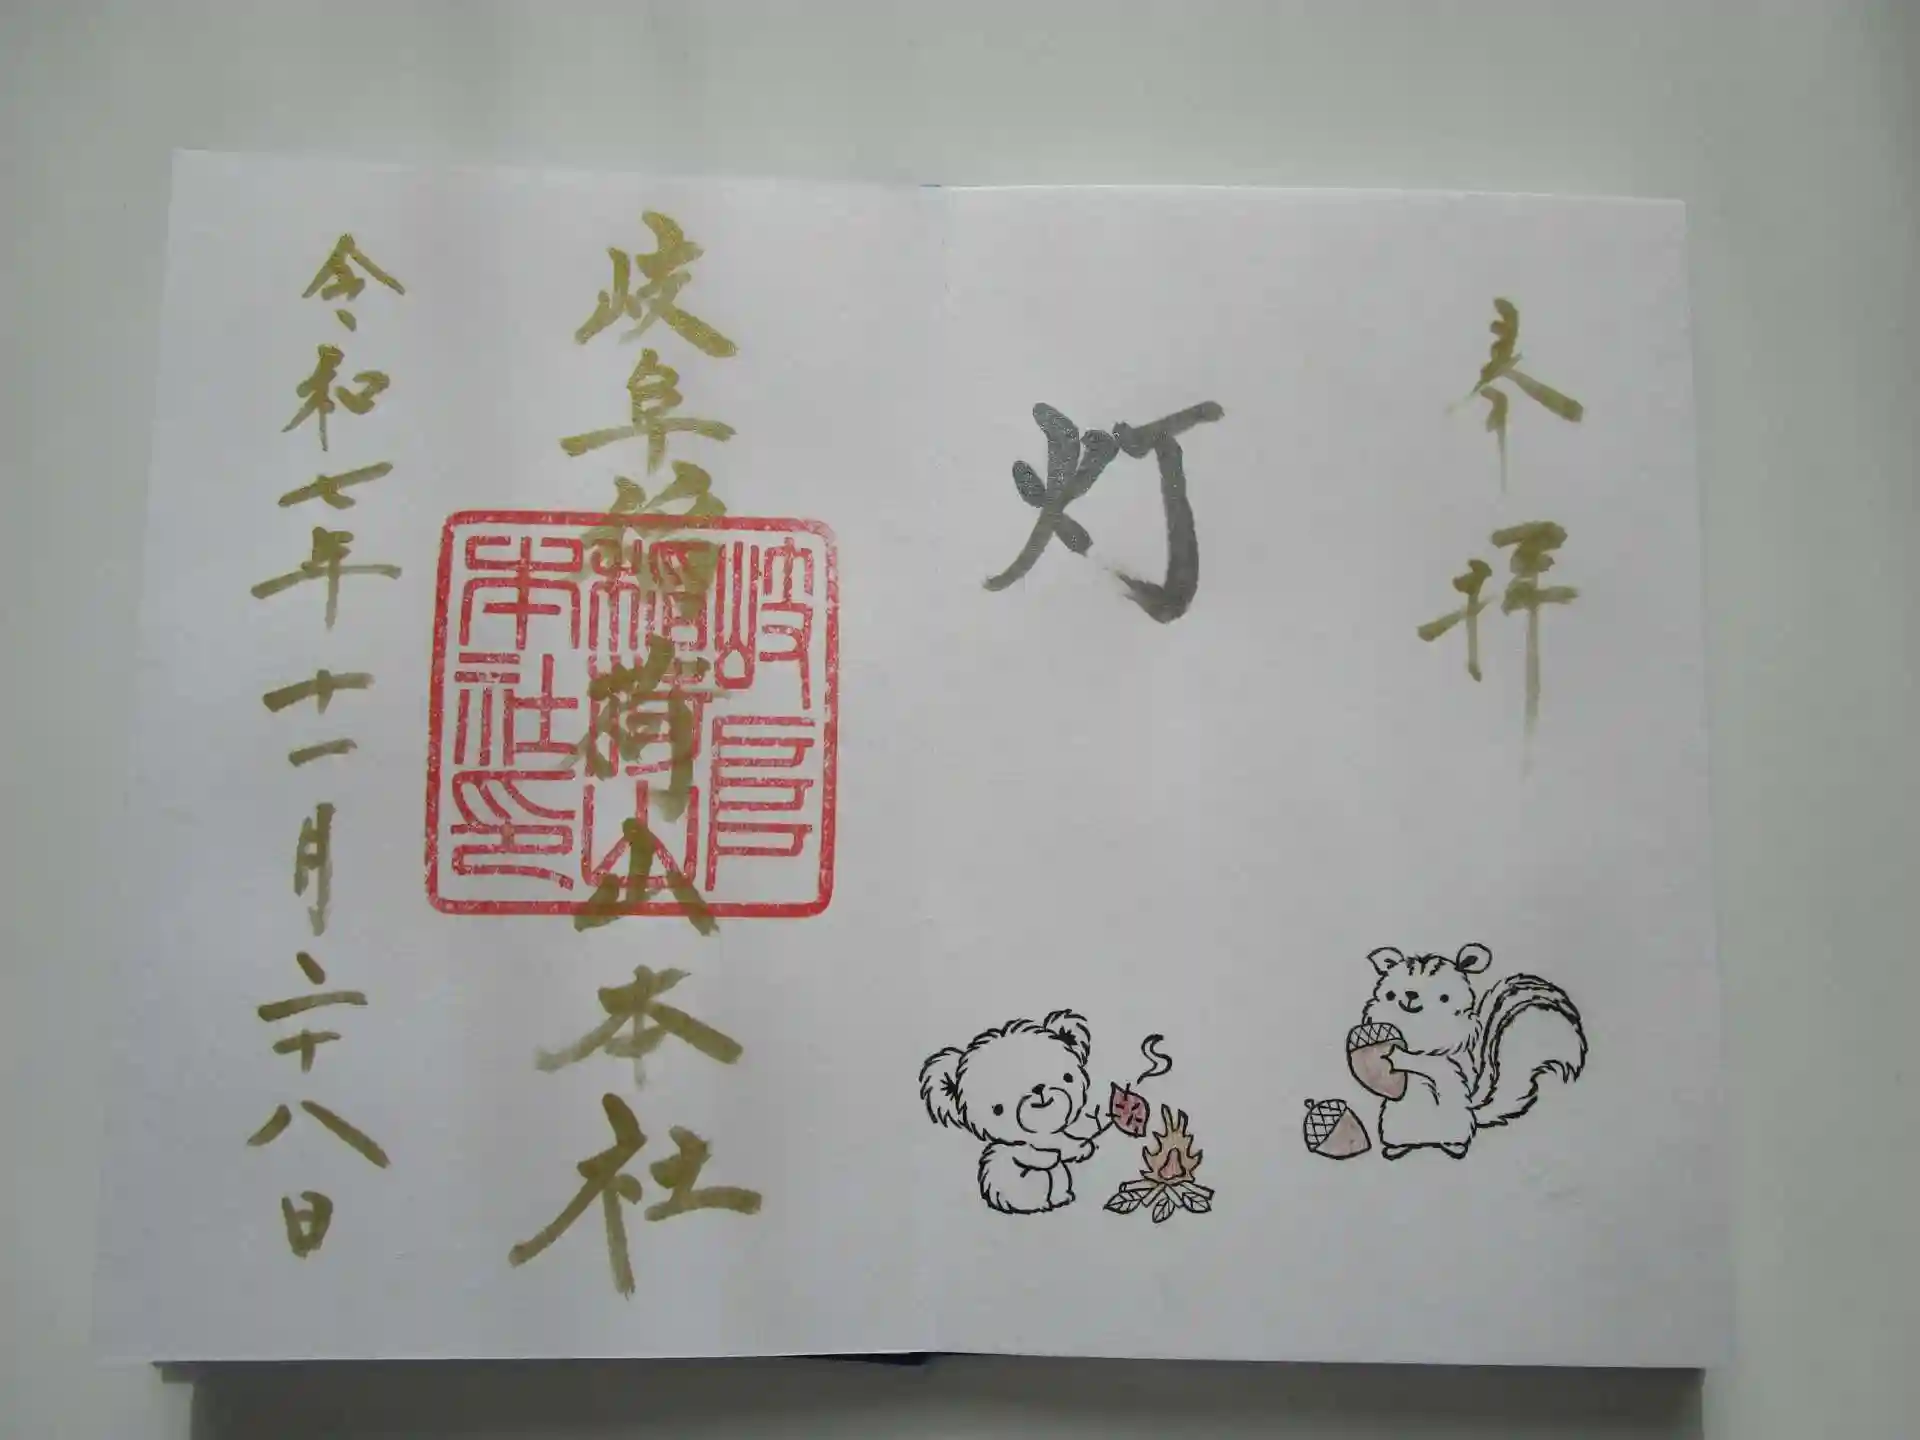 参拝
灯
岐阜稲荷山本社
岐阜稲荷山本社印
令和七年十一月二十八日